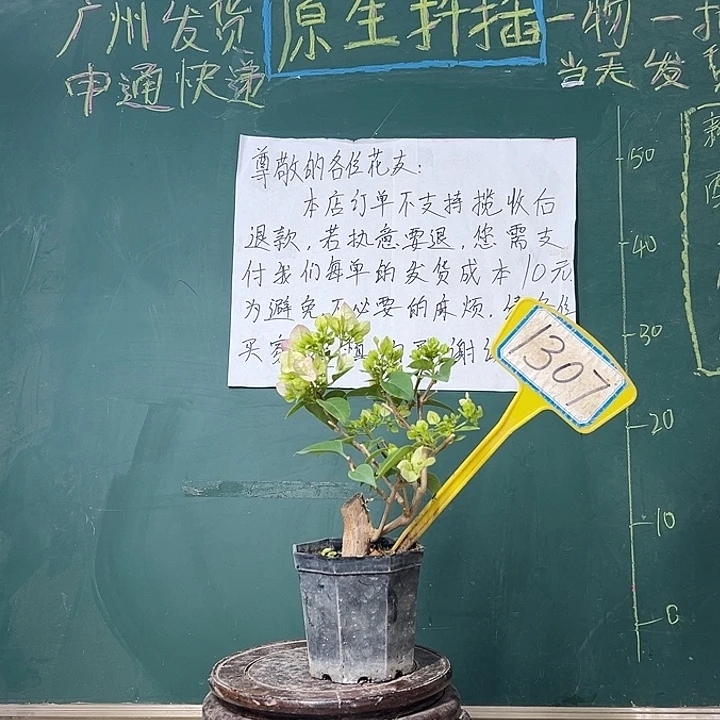 广州发货 原生扦插 一物一拍
申通快递 当天发
尊敬的各位花友:
本店订单不支持揽收后
退款,若执意要退,您需支
付我们每单的发货成本10元
为避免不必要的麻烦,
买家 谢
1307
50
40
30
20
10
0